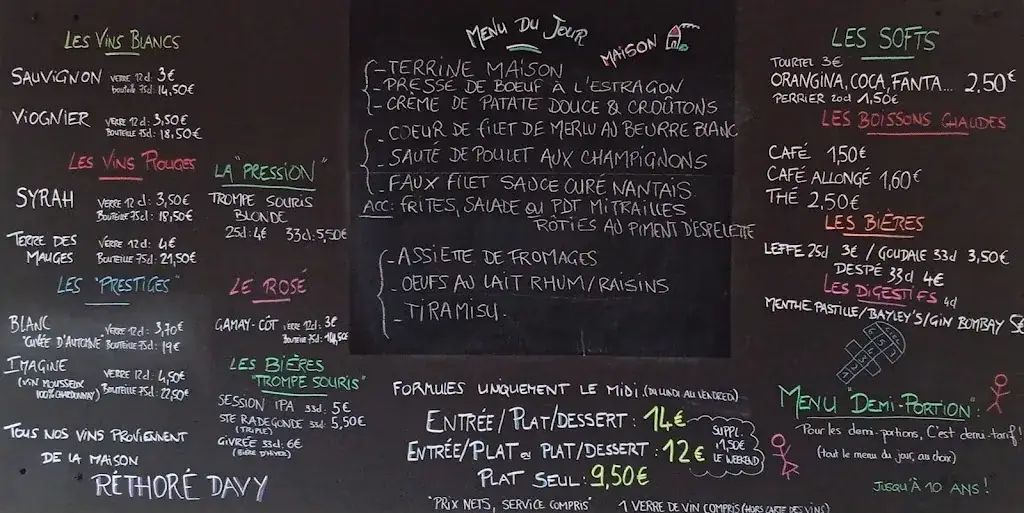 LES VINS BLANCS
SAUVIGNON VERRE 12cl: 3€
bouteille 75cl: 14,50€
VIOGNIER VERRE 12cl: 3,50€
BOUTEILLE 75cl: 18,50€
LES VINS ROUGES
SYRAH VERRE 12cl: 3,50€
BOUTEILLE 75cl: 18,50€
TERRE DES VERRE 12cl: 4€
MAUGES BOUTEILLE 75cl: 21,50€
LES "PRESTIGES"
BLANC VERRE 12cl: 3,70€
"CUVÉE D'AUTOMNE" BOUTEILLE 75cl: 19€
IMAGINE VERRE 12cl: 4,50€
(VIN MOUSSEUX BOUTEILLE 75cl: 22,50€
100% CHARDONNAY)
TOUS NOS VINS PROVIENNENT
DE LA MAISON
RÉTHORÉ DAVY
LA "PRESSION"
TROMPE SOURIS
BLONDE
25cl: 4€ 33cl: 5,50€
LE ROSÉ
GAMAY-CÔT VERRE 12cl: 3€
BOUTEILLE 75cl: 14,50€
LES BIÈRES
"TROMPE SOURIS"
SESSION IPA 33cl: 5€
STE RADEGONDE 33cl: 5,50€
(TRIPLE)
GIVRÉE 33cl: 6€
(BIÈRE D'HIVER)
MENU DU JOUR
MAISON
- TERRINE MAISON
- PRESSÉ DE BOEUF À L'ESTRAGON
- CRÈME DE PATATE DOUCE & CROÛTONS
- COEUR DE FILET DE MERLU AU BEURRE BLANC
- SAUTÉ DE POULET AUX CHAMPIGNONS
- FAUX FILET SAUCE CURÉ NANTAIS
ACC: FRITES, SALADE OU PDT MITRAILLES
RÔTIES AU PIMENT D'ESPELETTE
- ASSIETTE DE FROMAGES
- OEUFS AU LAIT RHUM/RAISINS
- TIRAMISU.
FORMULES UNIQUEMENT LE MIDI (DU LUNDI AU VENDREDI)
ENTRÉE/PLAT/DESSERT: 14€
ENTRÉE/PLAT OU PLAT/DESSERT: 12€
PLAT SEUL: 9,50€
SUPPL.
1,50€
LE WEEKEND
"PRIX NETS, SERVICE COMPRIS" 1 VERRE DE VIN COMPRIS (HORS CARTE DES VINS)
LES SOFTS
TOURTEL 3€
ORANGINA, COCA, FANTA... 2,50€
PERRIER 20cl 1,50€
LES BOISSONS CHAUDES
CAFÉ 1,50€
CAFÉ ALLONGÉ 1,60€
THÉ 2,50€
LES BIÈRES
LEFFE 25cl 3€ / GOUDALE 33cl 3,50€
DESPÉ 33cl 4€
LES DIGESTIFS 4cl
MENTHE PASTILLE/BAYLEY'S/GIN BOMBAY 5€
MENU "DEMI-PORTION":
Pour les demi-portions, C'est demi-tarif!
(tout le menu du jour, au choix)
JUSQU'À 10 ANS!